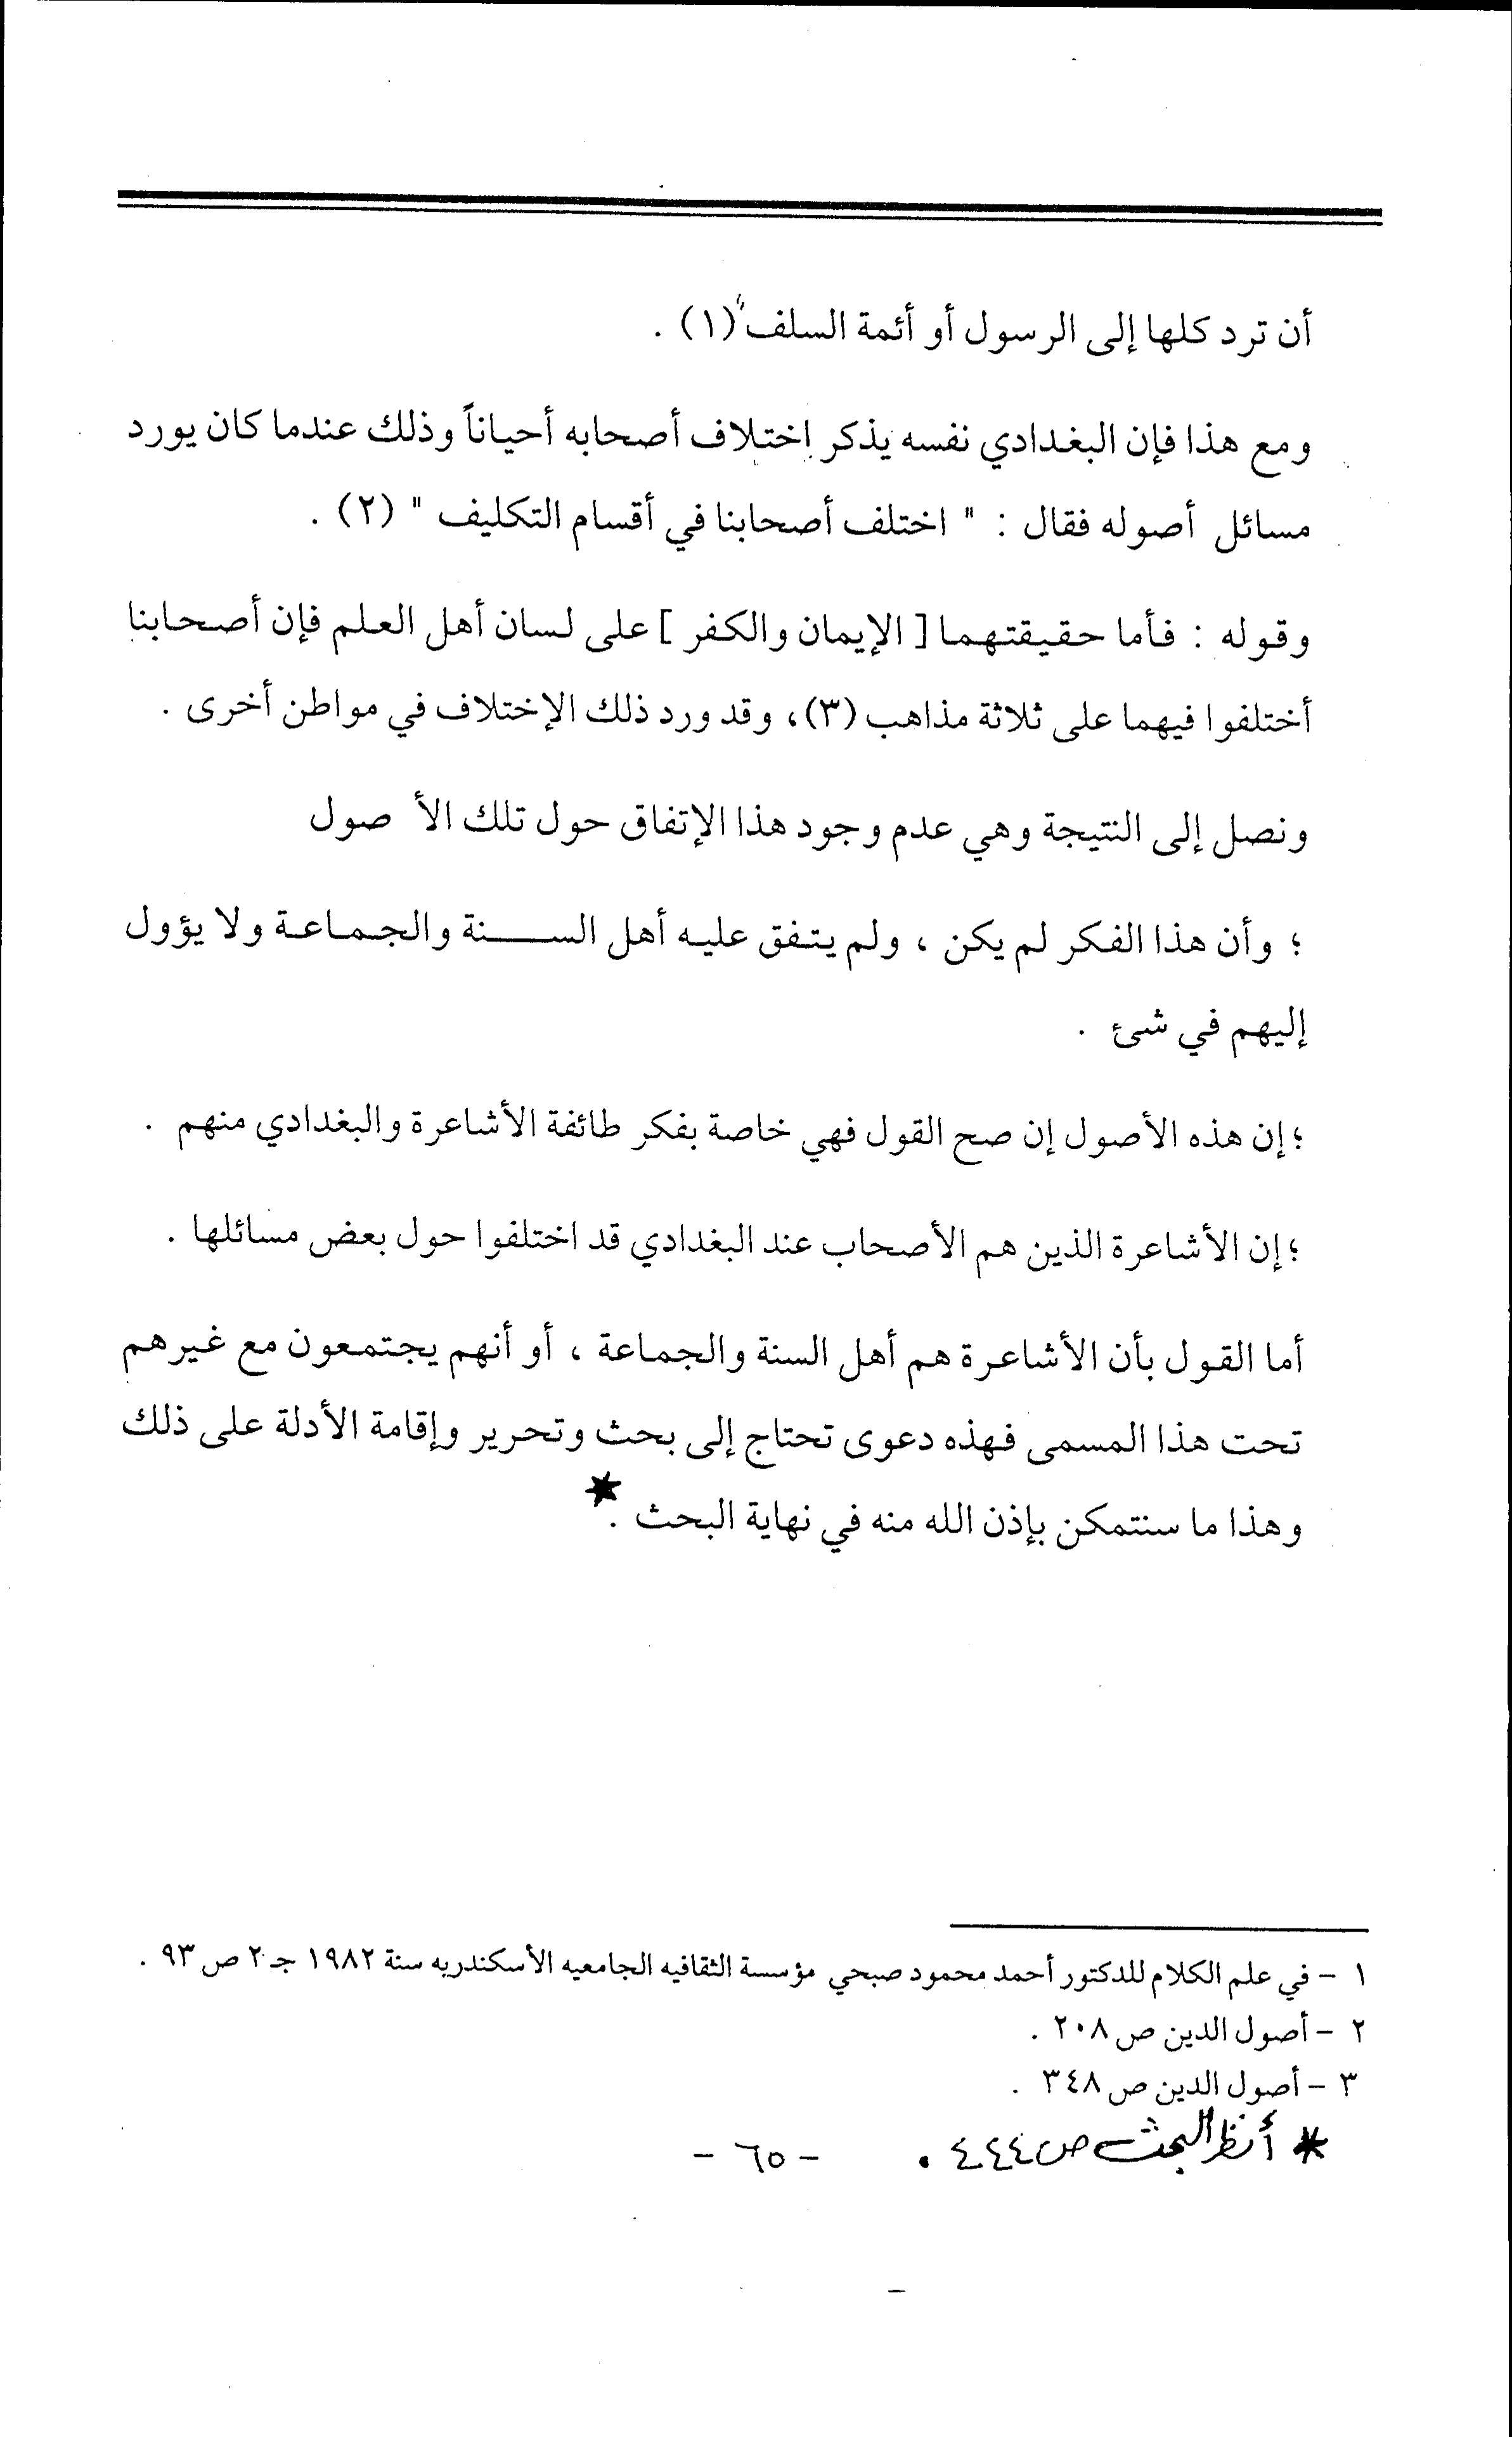 أن ترد كلها إلى الرسول أو أئمة السلف" (١) .
ومع هذا فإن البغدادي نفسه يذكر إختلاف أصحابه أحياناً وذلك عندما كان يورد
مسائل أصوله فقال : " اختلف أصحابنا في أقسام التكليف " (٢) .
وقوله : فأما حقيقتهما [ الإيمان والكفر ] على لسان أهل العلم فإن أصحابنا
أختلفوا فيهما على ثلاثة مذاهب (٣)، وقد ورد ذلك الإختلاف في مواطن أخرى .
ونصل إلى النتيجة وهي عدم وجود هذا الإتفاق حول تلك الأ صول
؛ وأن هذا الفكر لم يكن ، ولم يتفق عليه أهل الســـــنة والجماعة ولا يؤول
إليهم في شئ .
؛ إن هذه الأصول إن صح القول فهي خاصة بفكر طائفة الأشاعرة والبغدادي منهم .
؛ إن الأشاعرة الذين هم الأصحاب عند البغدادي قد اختلفوا حول بعض مسائلها .
أما القول بأن الأشاعرة هم أهل السنة والجماعة ، أو أنهم يجتمعون مع غيرهم
تحت هذا المسمى فهذه دعوى تحتاج إلى بحث وتحرير وإقامة الأدلة على ذلك
وهذا ما سنتمكن بإذن الله منه في نهاية البحث . *
١ - في علم الكلام للدكتور أحمد محمود صبحي مؤسسة الثقافيه الجامعيه الأسكندريه سنة ١٩٨٢ جـ ٢ ص ٩٣ .
٢ - أصول الدين ص ٢٠٨ .
٣ - أصول الدين ص ٣٤٨ .
* أنظر البحث ص ٤٤٤ .
- ٦٥ -